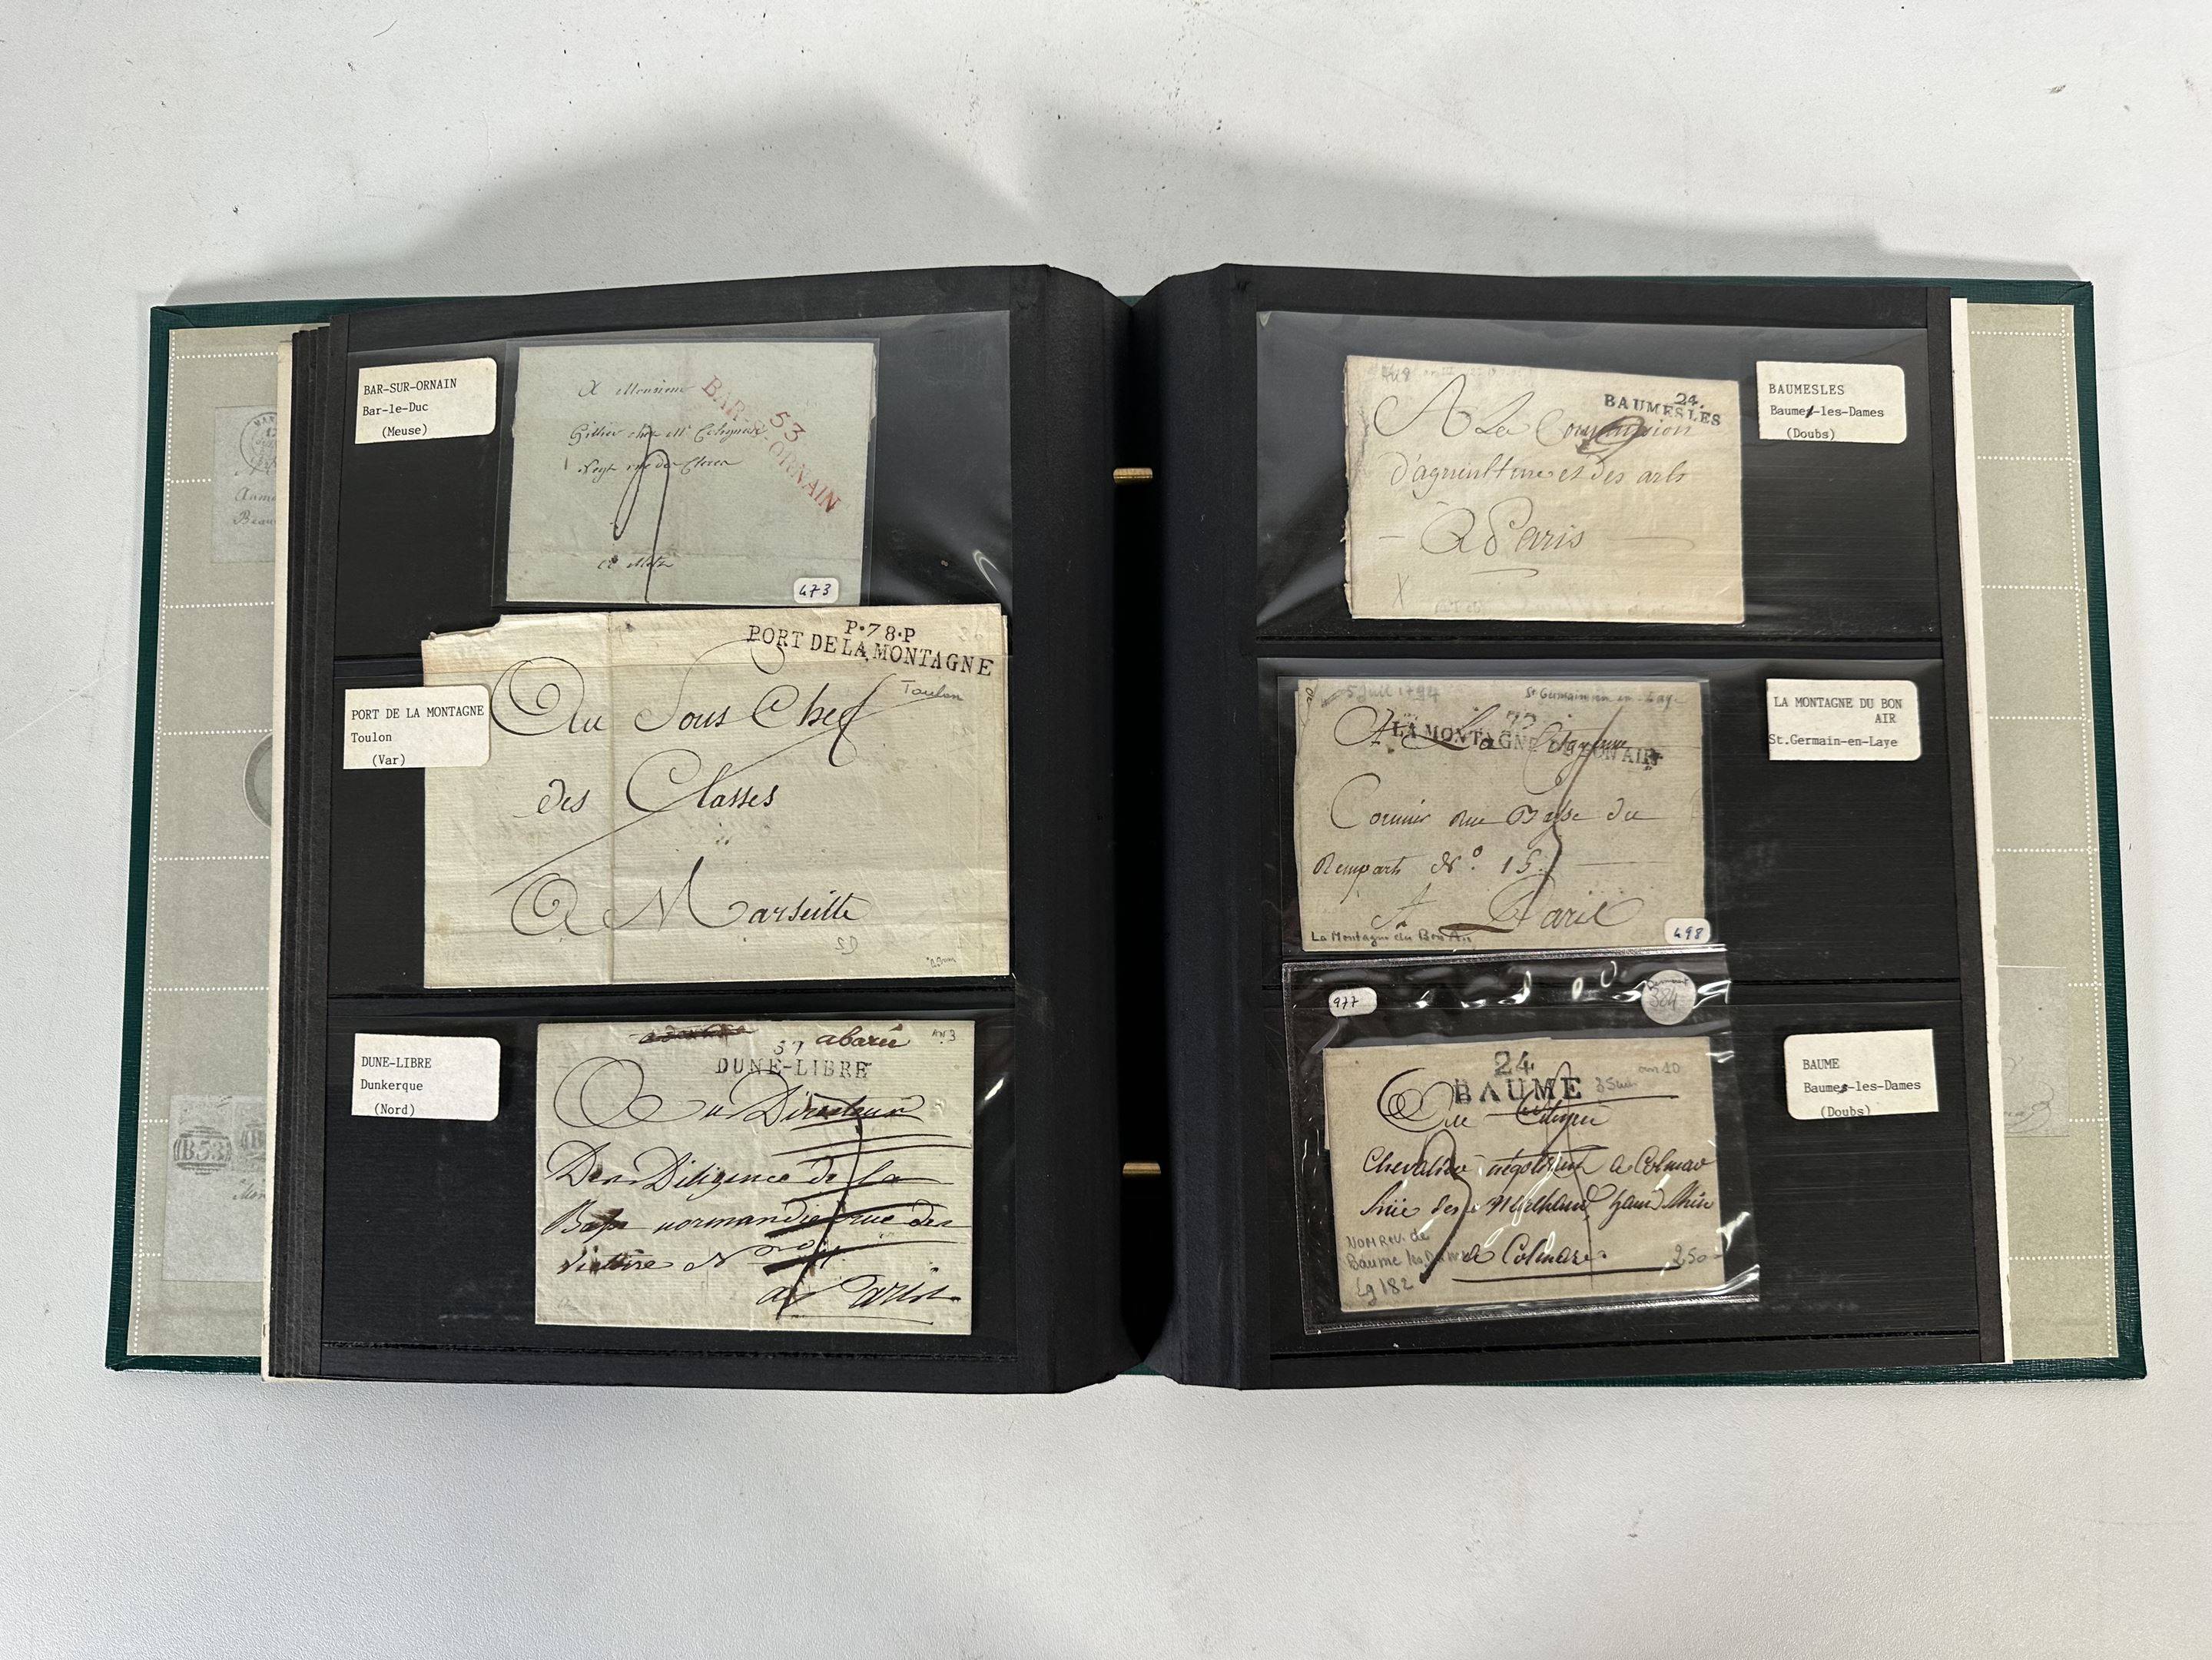 BAR-SUR-ORNAIN
Bar-le-Duc
(Meuse)
53
BAR-SUR-ORNAIN
A Monsieur
Gillier chez Mr
Negt rue des Clercs
A Metz
473
PORT DE LA MONTAGNE
Toulon
(Var)
P•78•P
PORT DE LA MONTAGNE
Toulon
Au Sous Chef
des Classes
A Marseille
DUNE-LIBRE
Dunkerque
(Nord)
abarié
AN 3
57
DUNE-LIBRE
Au Directeur
Des Diligence de la
Basse normandie rue des
Victoire N
a Paris
BAUMESLES
Baume-les-Dames
(Doubs)
24.
BAUMESLES
A La Commission
d'agriculture et des arts
A Paris
X
LA MONTAGNE DU BON
AIR
St.Germain-en-Laye
5 Juil 1794
St Germain en Laye
72
LA MONTAGNE DU BON AIR
A La Citoyenne
rue Basse du
Remparts No. 15
A Paris
La Montagne du Bon Air
498
977
384
BAUME
Baumes-les-Dames
(Doubs)
24
BAUME
35mm
an 10
Au Citoyen
Chevalier négotiant a Colmar
haut Rhin
a Colmar
NOM Rev. de
Baume les Dames
Lg 182
250-
B53